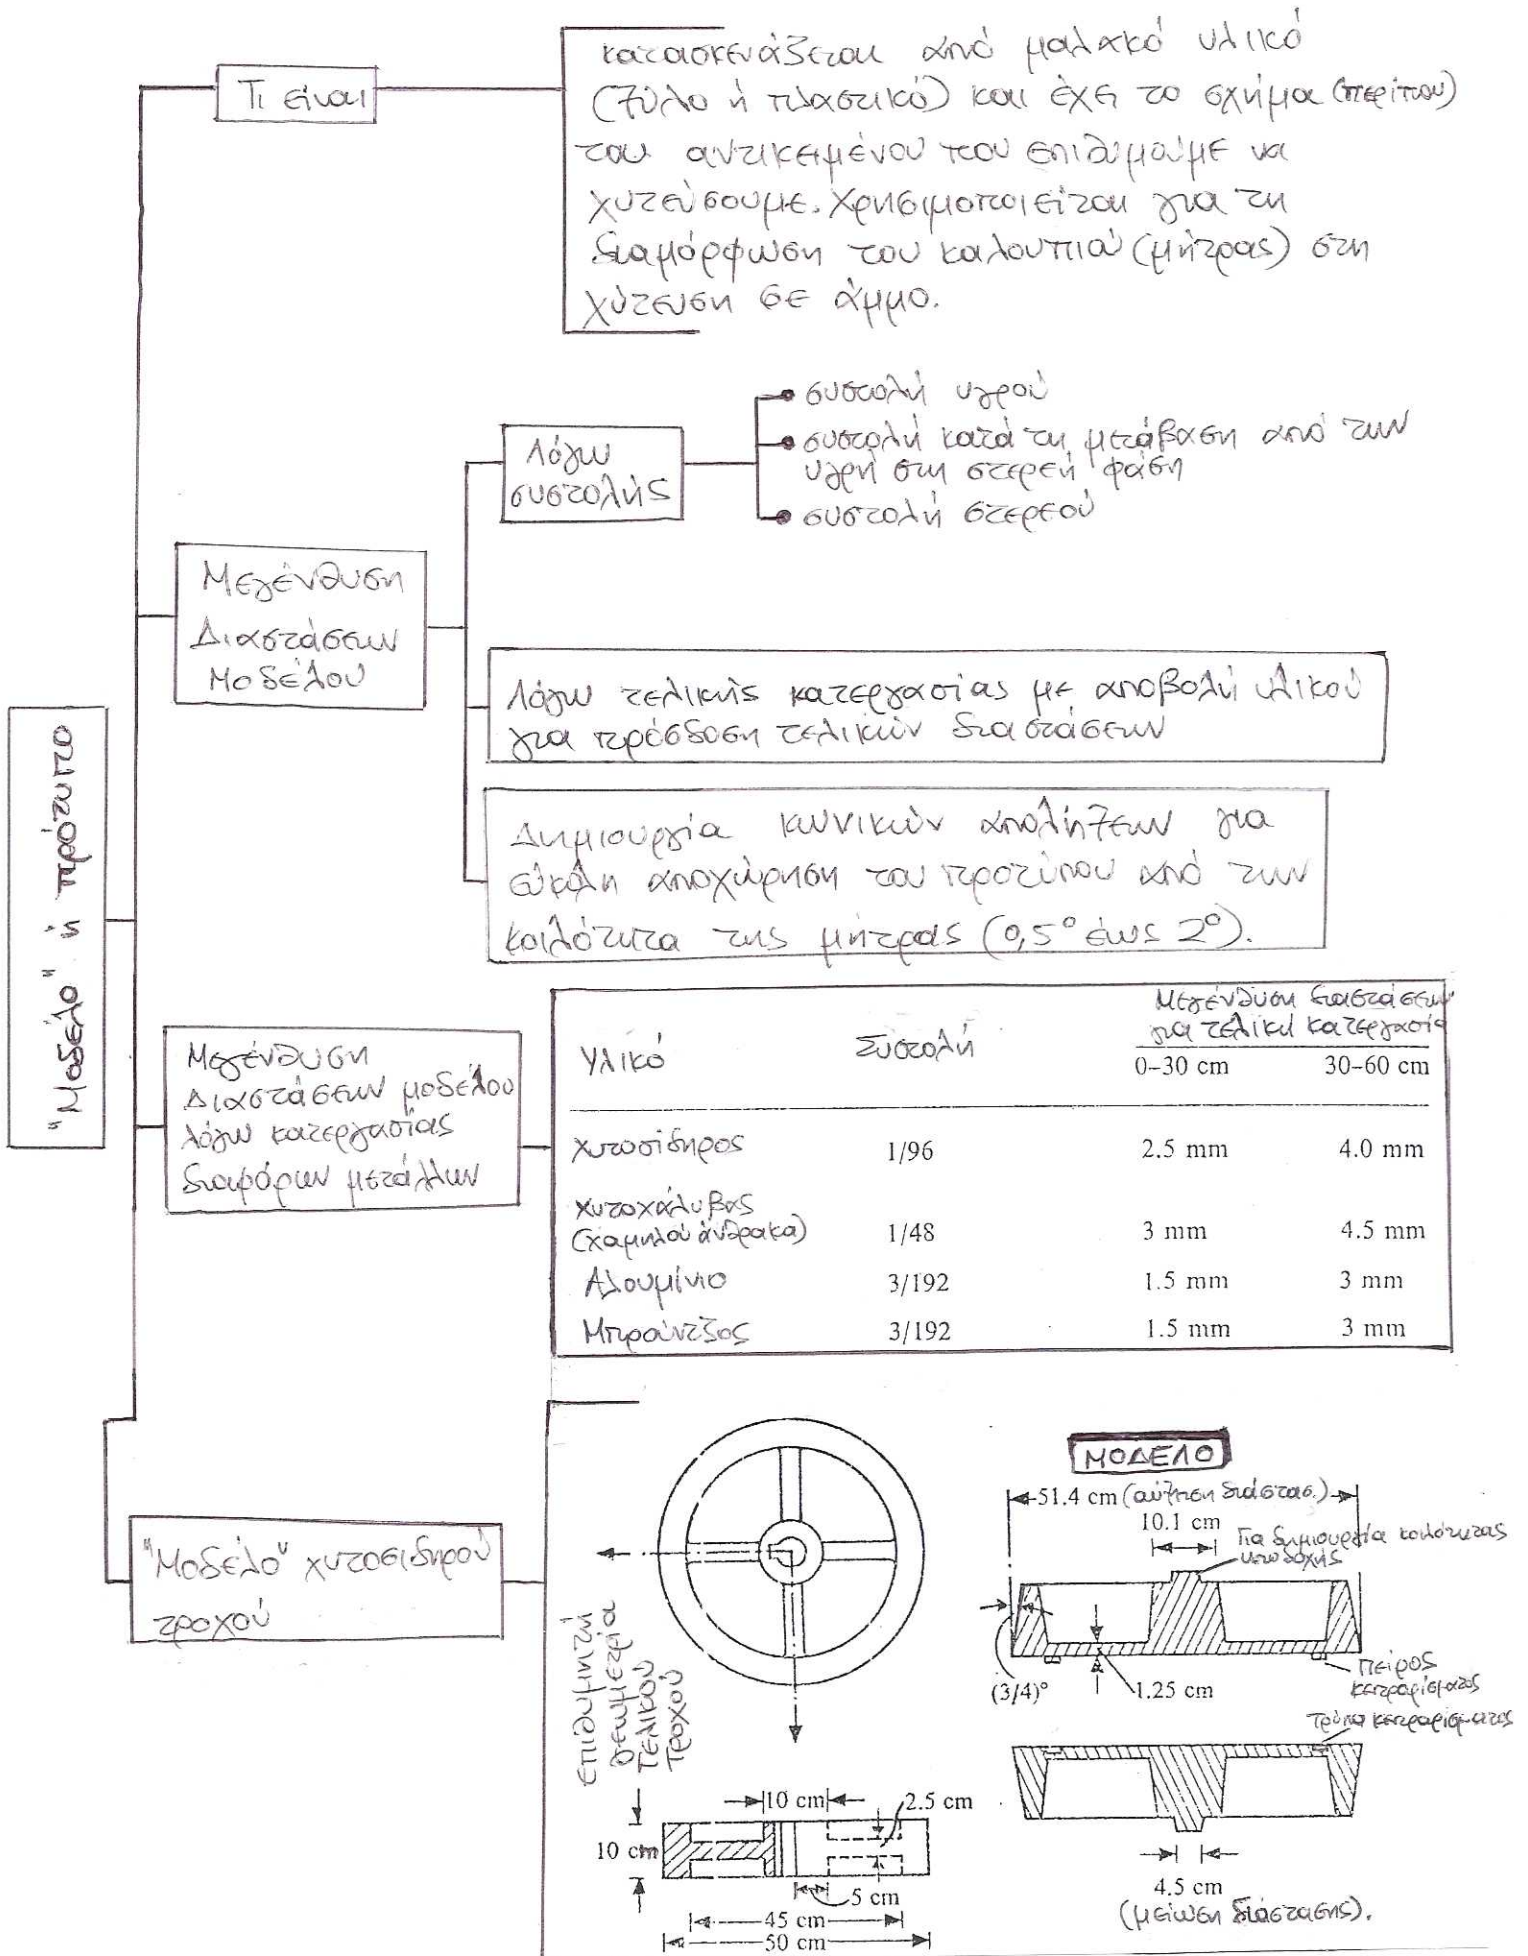 Τι είναι
κατασκευάζεται από μαλακό υλικό
(ξύλο ή πλαστικό) και έχει το σχήμα (περίπου)
του αντικειμένου που επιθυμούμε να
χυτεύσουμε. Χρησιμοποιείται για τη
διαμόρφωση του καλουπιού (μήτρας) στη
χύτευση σε άμμο.
"Μοδέλο" ή πρότυπο
Μεγένθυση
Διαστάσεων
Μοδέλου
Λόγω
συστολής
συστολή υγρού
συστολή κατά τη μετάβαση από την
υγρή στη στερεή φάση
συστολή στερεού
Λόγω τελικής κατεργασίας με αποβολή υλικού
για πρόσδοση τελικών διαστάσεων
Δημιουργία κωνικών απολήξεων για
εύκολη αποχώρηση του προτύπου από την
κοιλότητα της μήτρας (0,5° έως 2°).
Μεγένθυση
Διαστάσεων μοδέλου
λόγω κατεργασίας
διαφόρων μετάλλων
Υλικό Συστολή Μεγένθυση διαστάσεων
για τελική κατεργασία
0–30 cm 30–60 cm
Χυτοσίδηρος 1/96 2.5 mm 4.0 mm
Χυτοχάλυβας
(χαμηλού άνθρακα) 1/48 3 mm 4.5 mm
Αλουμίνιο 3/192 1.5 mm 3 mm
Μπρούντζος 3/192 1.5 mm 3 mm
"Μοδέλο" χυτοσιδηρού
τροχού
Επιθυμητή
γεωμετρία
τελικού
τροχού
10 cm
2.5 cm
10 cm
5 cm
45 cm
50 cm
ΜΟΔΕΛΟ
51.4 cm (αύξηση διάστασ.)
10.1 cm
Για δημιουργία κοιλότητας
υποδοχής
(3/4)°
1.25 cm
Πείρος
κεντραρίσματος
τρύπα κεντραρίσματος
4.5 cm
(μείωση διάστασης).